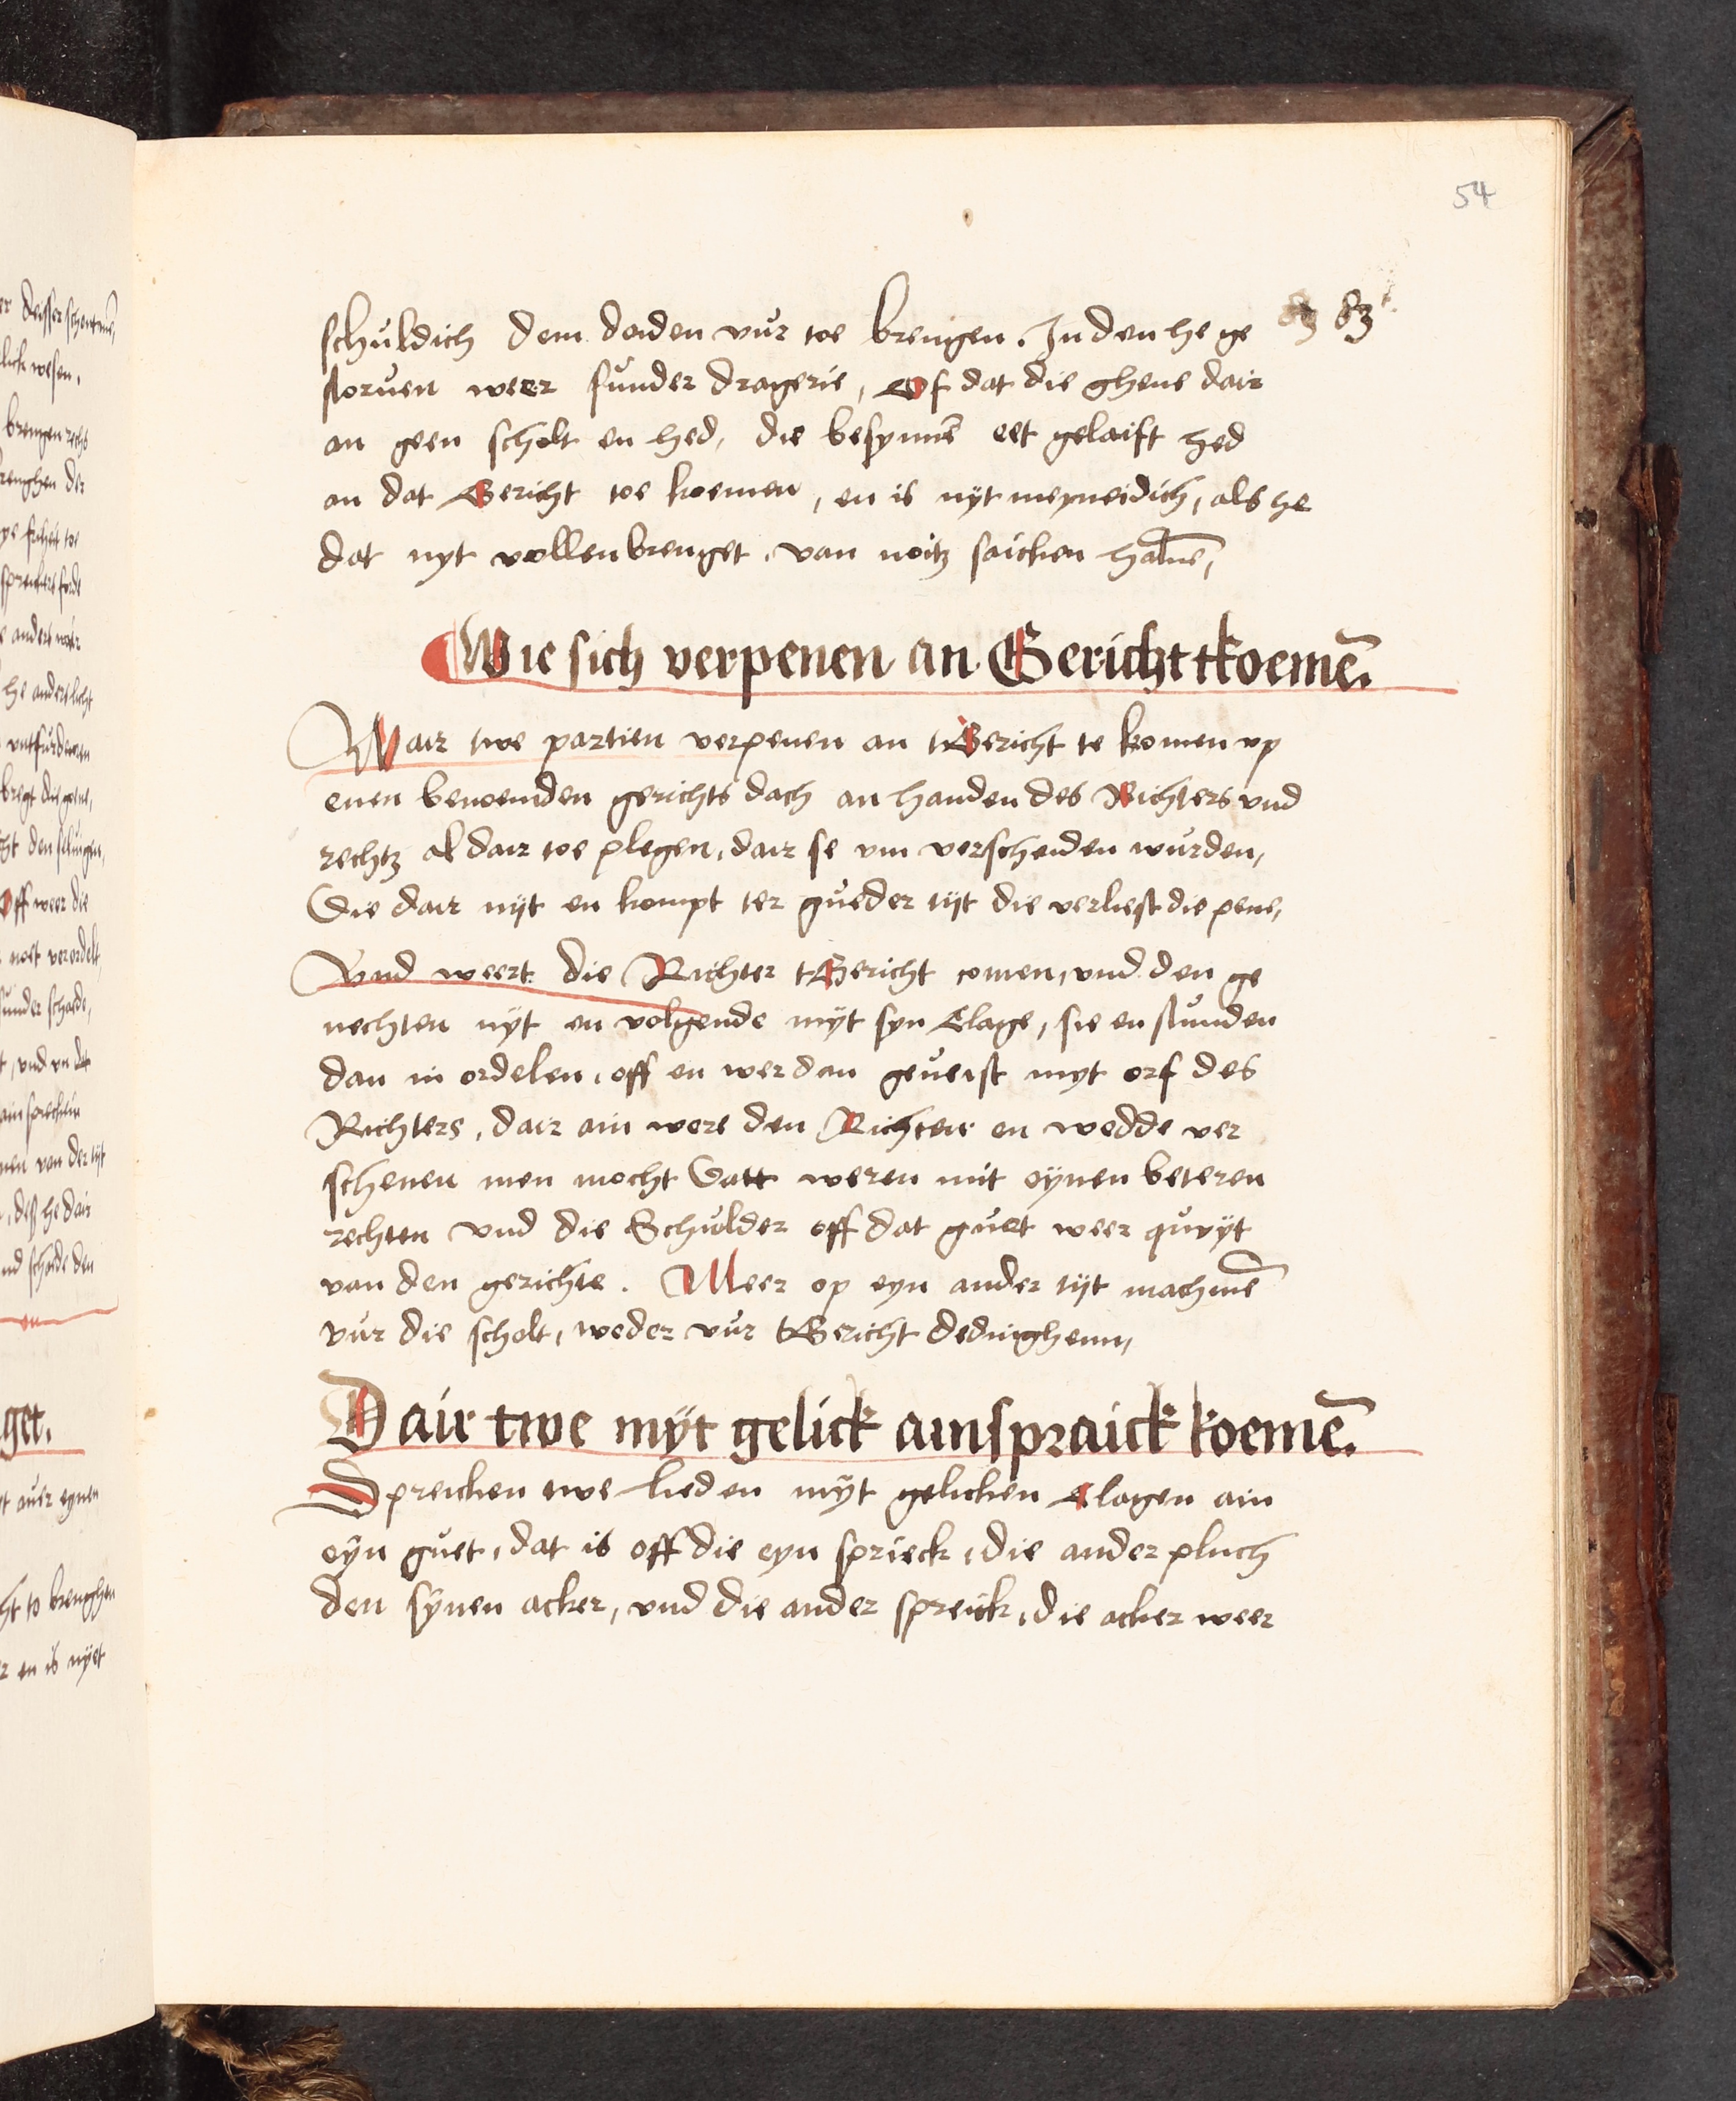 54
83
schuldich dem doiden vur toe brengen. In den he ge
storuen weer sunder dragerie, Of dat die ghene dair
an geen scholt en hed, die besynnē eet gelaift hed
an dat Gericht toe koemen, en is nÿt meyneidich, als he
dat nyt vollenbrenget, van noitz saicken haluē,
Wie sich verpenen an Gericht tkoemē.
Wair twe partien verpenen an tGericht te komen vp
enen benoemden gerichts dach an handen des Richters vnd
rechtz aldair toe plegen, dair se vm verscheiden wurden,
Die dair nÿt en kompt ter gueder tijt die verliest die pene,
Vnd weert die Richter tGericht comen, vnd den ge
nechten nÿt en volgende mÿt syn Clage, sie en stunden
dan in ordelen, off en wer dan geueist myt orf des
Richters, dair ain were den Richter en wedde ver
schenen men mocht Datt weren mit eÿnen beteren
rechten vnd die Schulder off dat guet weer quyÿt
van den gerichte. Meer op eyn ander tijt machmē
vur die scholt, weder vur tGericht dedinghenn,
Dair twe mÿt gelick ainspraick koemē.
Spreicken twe lieden mÿt gelicken Clagen ain
eÿn guet, dat is off die eyn sprieck, die ander pluch
den sÿnen acker, vnd die ander spreick, die acker weer